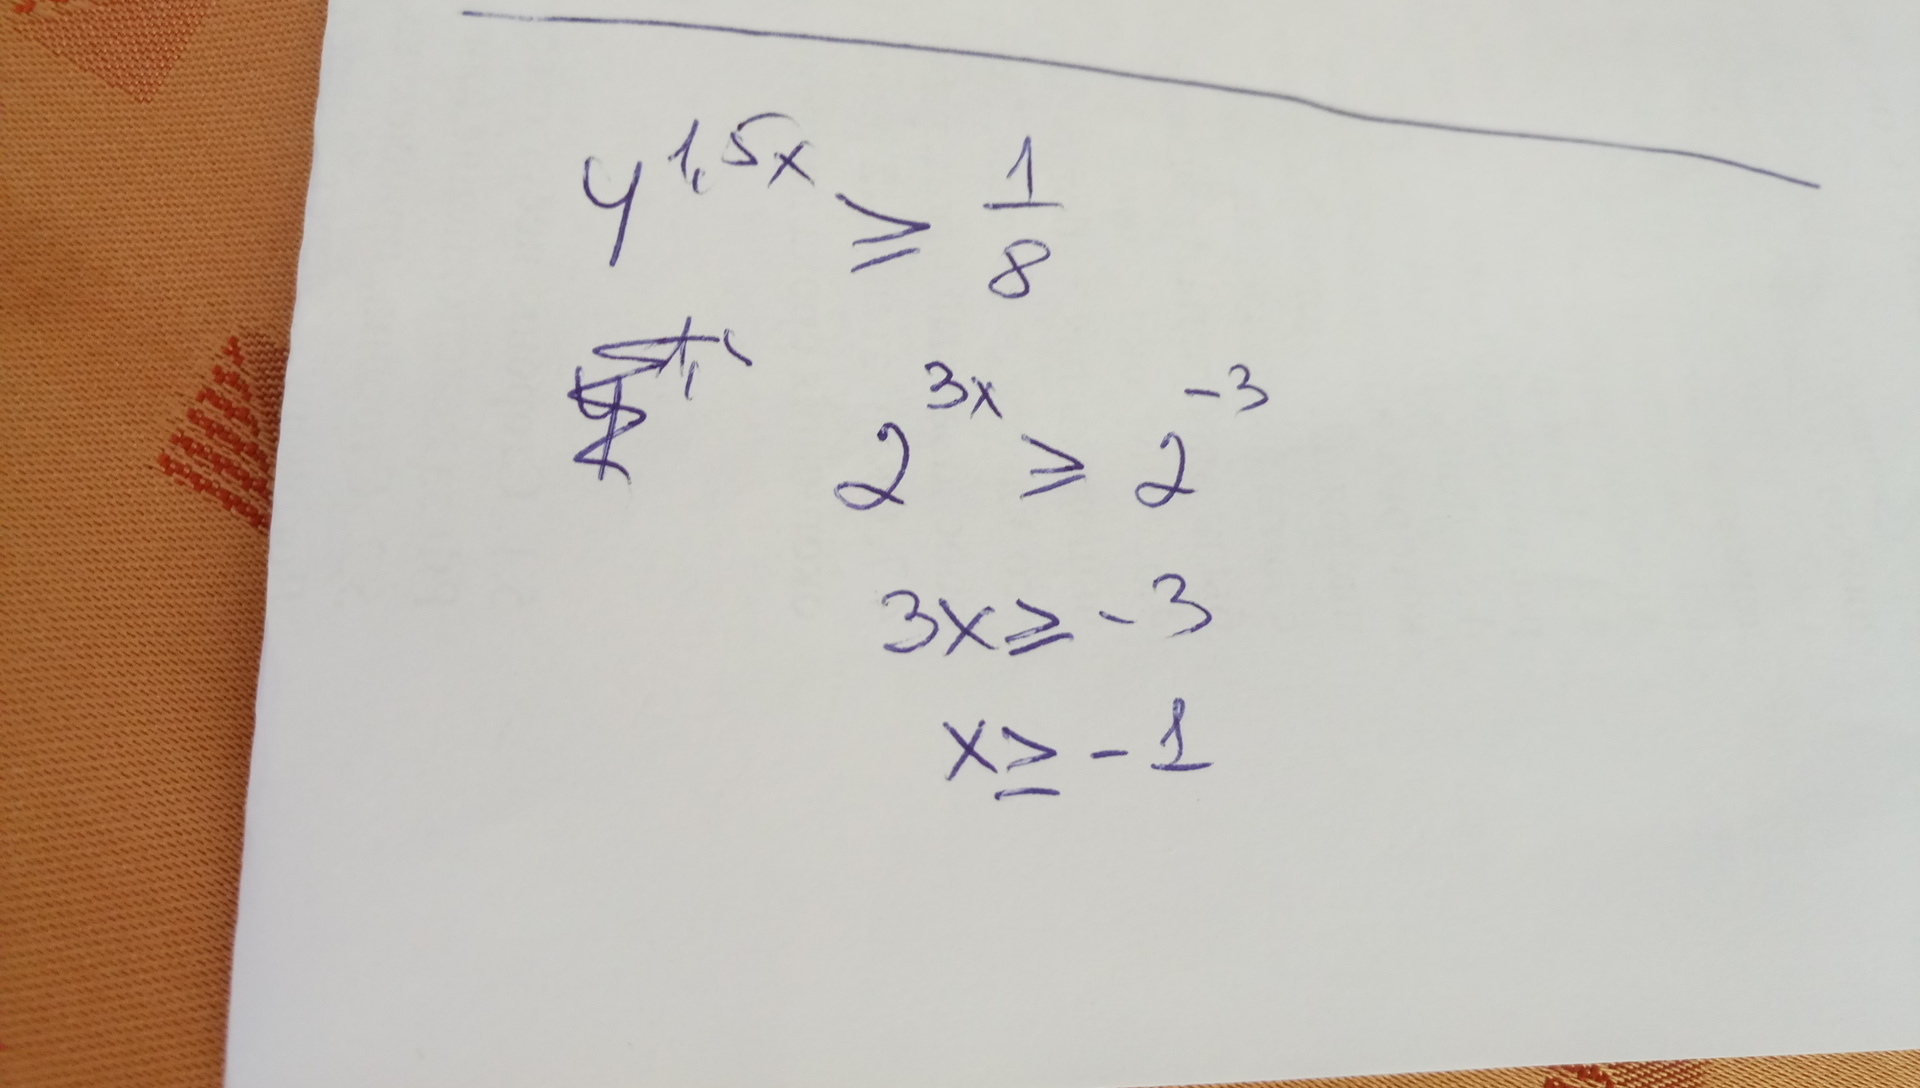 4^{1,5x} ≥ \frac{1}{8}
2^{3x} ≥ 2^{-3}
3x ≥ -3
x ≥ -1